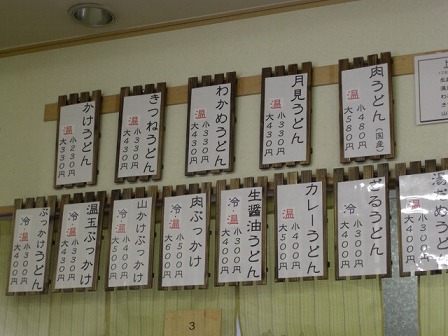 かけうどん
温
小230円
大330円
きつねうどん
温
小330円
大430円
わかめうどん
温
小330円
大430円
月見うどん
温
小330円
大430円
肉うどん(国産)
温
小480円
大580円
ぶっかけうどん
冷
温
小300円
大400円
温玉ぶっかけ
冷
温
小330円
大430円
山かけぶっかけ
冷
温
小400円
大500円
肉ぶっかけ
冷
温
小500円
大600円
生醤油うどん
冷
温
小300円
大400円
カレーうどん
温
小400円
大500円
ざるうどん
冷
小300円
大400円
3